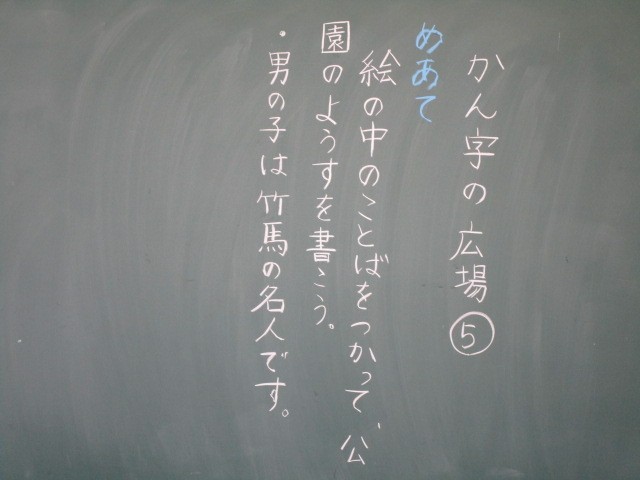 かん字の広場⑤
めあて
絵の中のことばをつかって、公
園のようすを書こう。
・男の子は竹馬の名人です。